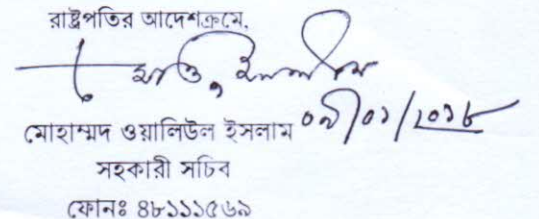 রাষ্ট্রপতির আদেশক্রমে,
মোহাম্মদ ওয়ালিউল ইসলাম
সহকারী সচিব
ফোনঃ ৪৮১১১৫৬৯